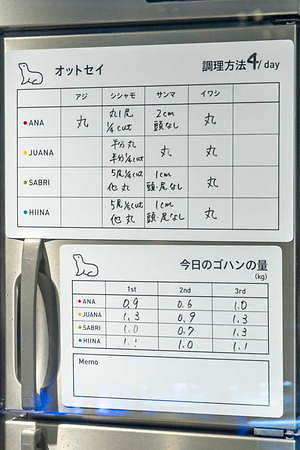 オットセイ 調理方法 4/day
アジ シシャモ サンマ イワシ
ANA 丸 丸1尾 2cm 丸
1/2cut 頭なし
JUANA 半分丸 丸 丸
半分1/2cut
SABRI 5尾1/2cut 1cm 丸
他丸 頭・尾なし
HIINA 5尾1/2cut 1cm 丸
他丸 頭・尾なし
今日のゴハンの量
(kg)
1st 2nd 3rd
ANA 0.9 0.6 1.0
JUANA 1.3 0.9 1.3
SABRI 1.0 0.7 1.3
HIINA 1.1 1.0 1.1
Memo